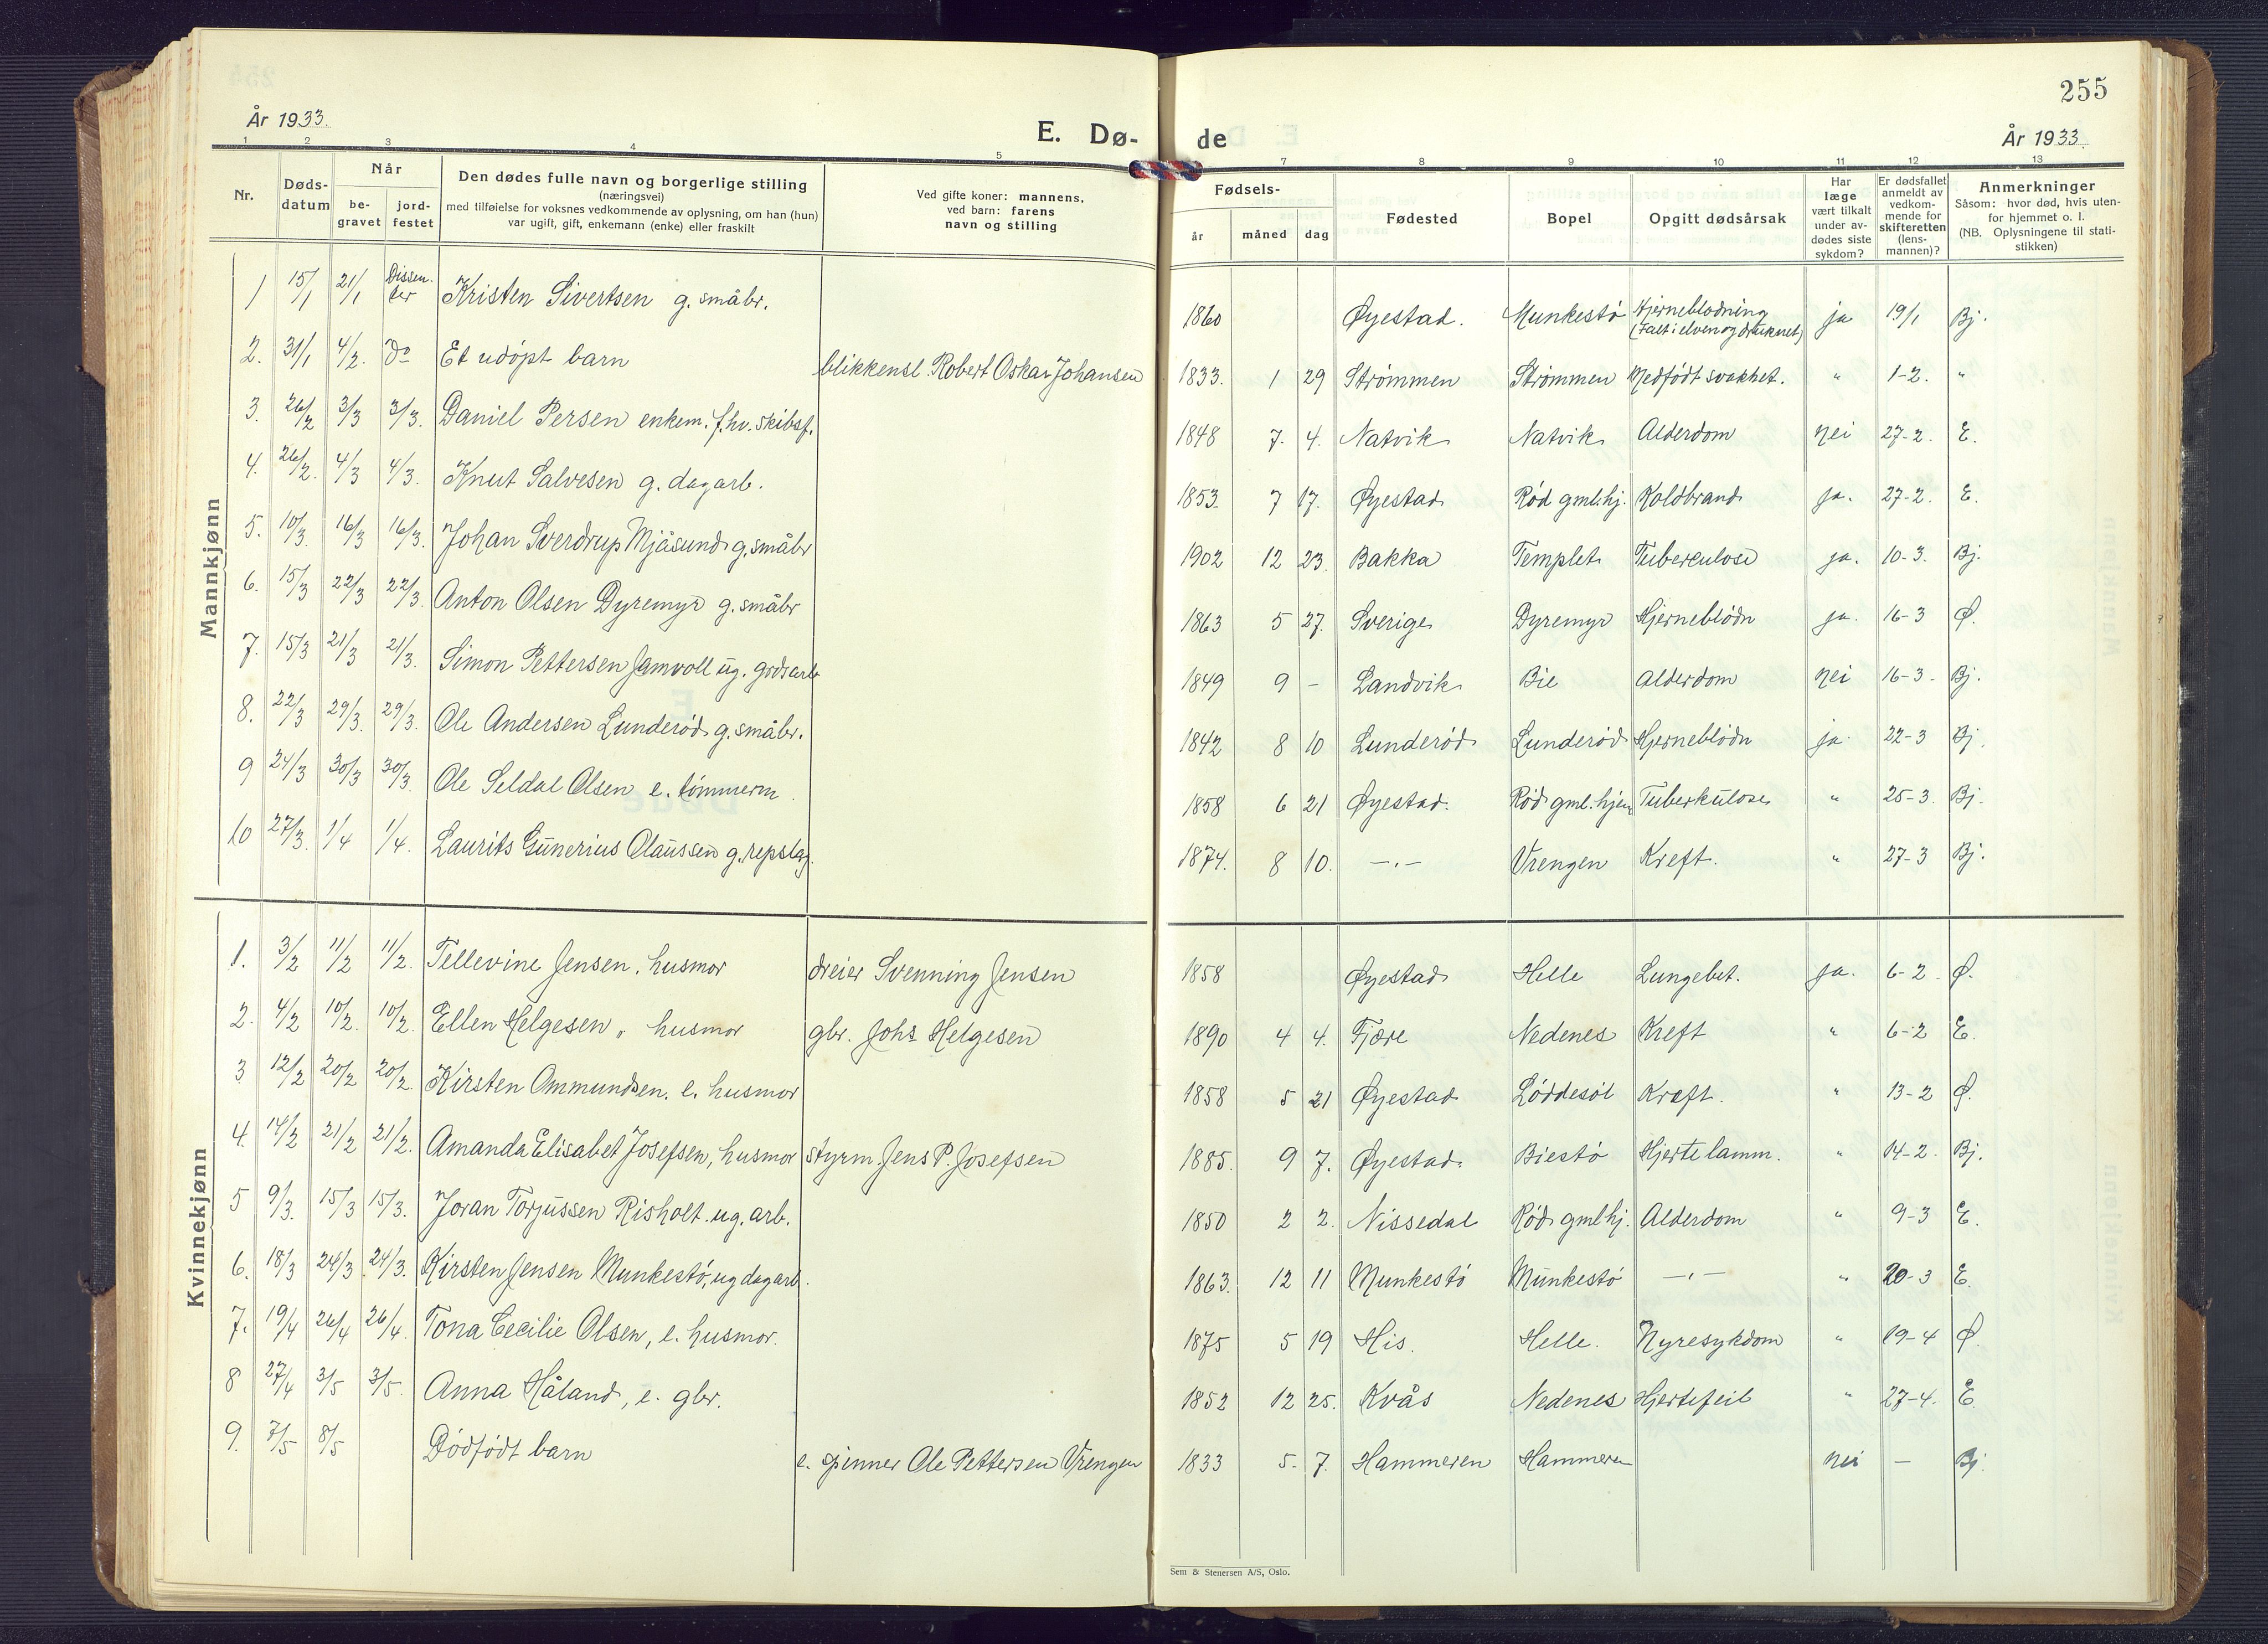 255
År 1933.
E. Dø-
de
År 1933.
1 2 3 4 5 7 8 9 10 11 12 13
Nr.
Døds-
datum
Når
be-
gravet
jord-
festet
Den dødes fulle navn og borgerlige stilling
(næringsvei)
med tilføielse for voksnes vedkommende av oplysning, om han (hun)
var ugift, gift, enkemann (enke) eller fraskilt
Ved gifte koner: mannens,
ved barn: farens
navn og stilling
Fødsels-
år måned dag
Fødested
Bopel
Opgitt dødsårsak
Har
læge
vært tilkalt
under av-
dødes siste
sykdom?
Er dødsfallet
anmeldt av
vedkom-
mende for
skifteretten
(lens-
mannen)?
Anmerkninger
Såsom: hvor død, hvis uten-
for hjemmet o. l.
(NB. Oplysningene til stati-
stikken)
Mannkjønn
1 15/1 21/1 Dissen-
ter Kristen Sivertsen g. småbr. 1860 Øyestad. Munkestø Hjerneblødning
(Falt i elven og druknet) ja 19/1 Bj.
2. 31/1 4/2. do Et udøpt barn blikkensl. Robert Oskar Johansen 1833. 1 29 Strømmen Strømmen Medfødt svakhet. " 1-2. "
3. 26/2 3/3 3/3. Daniel Persen enkem. f.hv. skibsf. 1848 7. 4. Natvik Natvik Alderdom nei 27-2. E.
4. 26/2. 4/3 4/3. Knut Salvesen g. dagarb. 1853. 7 17. Øyestad Rød gml.hj. Koldbrand ja. 27-2. E.
5. 10/3. 16/3 16/3. Johan Sverdrup Mjåsund g. småbr 1902 12 23. Bakka Templet Tuberculose ja. 10-3. Bj.
6. 15/3 22/3 22/3. Anton Olsen Dyremyr g. småbr 1863 5 27. Sverige Dyremyr Hjerneblødn ja. 16-3 Ø.
7. 15/3 21/3 21/3. Simon Pettersen Jamvoll ug. grdsarb 1849 9 - Landvik Bie Alderdom nei 16-3. Bj.
8. 22/3 29/3. 29/3. Ole Andersen Lunderød g. småbr. 1842 8 10 Lunderød Lunderød Hjerneblødn ja. 22-3 Bj.
9 24/3 30/3 30/3. Ole Seldal Olsen e. tømmerm. 1858 6 21 Øyestad. Rød gml. hjem Tuberkulose " 25-3. Bj.
10 27/3. 1/4 1/4. Laurits Gunerius Olaussen g. repslag. 1874. 8 10. -"- Vrengen Kreft. " 27-3 Bj.
Kvinnekjønn
1. 3/2 11/2 11/2. Tellevine Jensen. husmor dreier Svenning Jensen 1858 Øyestad Helle Lungebet. ja. 6-2. Ø.
2. 4/2 10/2. 10/2. Ellen Helgesen, husmor gbr. Johs Helgesen 1890 4 4. Fjære Nedenes Kreft " 6-2 E.
3 12/2 20/2 20/2. Kirsten Ommundsen. e. husmor 1858 5 21 Øyestad Løddesøl Kreft. " 13-2 Ø.
4. 14/2 21/2 21/2. Amanda Elisabet Josefsen, husmor styrm. Jens P. Josefsen 1885. 9 7. Øyestad. Biestø Hjertelamm. " 14-2. Bj.
5 9/3. 15/3 15/3. Joran Torjussen Risholt. ug. arb. 1850 2 2. Nissedal Rød gml hj. Alderdom " 9-3 E.
6. 18/3 24/3 24/3. Kirsten Jensen Munkestø, ug dagarb. 1863. 12 11 Munkestø Munkestø -"- " 20-3 E.
7. 19/4 26/4 26/4. Tona Cecilie Olsen, e. husmor. 1875 5 19 His. Helle. Nyresykdom " 19-4 Ø.
8 27/4 3/5 3/5. Anna Håland, e. gbr. 1852 12 25. Kvås Nedenes Hjertefeil " 27-4. E.
9. 7/5 8/5 Dødfødt barn e. spinner Ole Pettersen Vrengen 1833 5. 7. Hammeren Hammeren nei - Bj.
Sem & Stenersen A/S, Oslo.